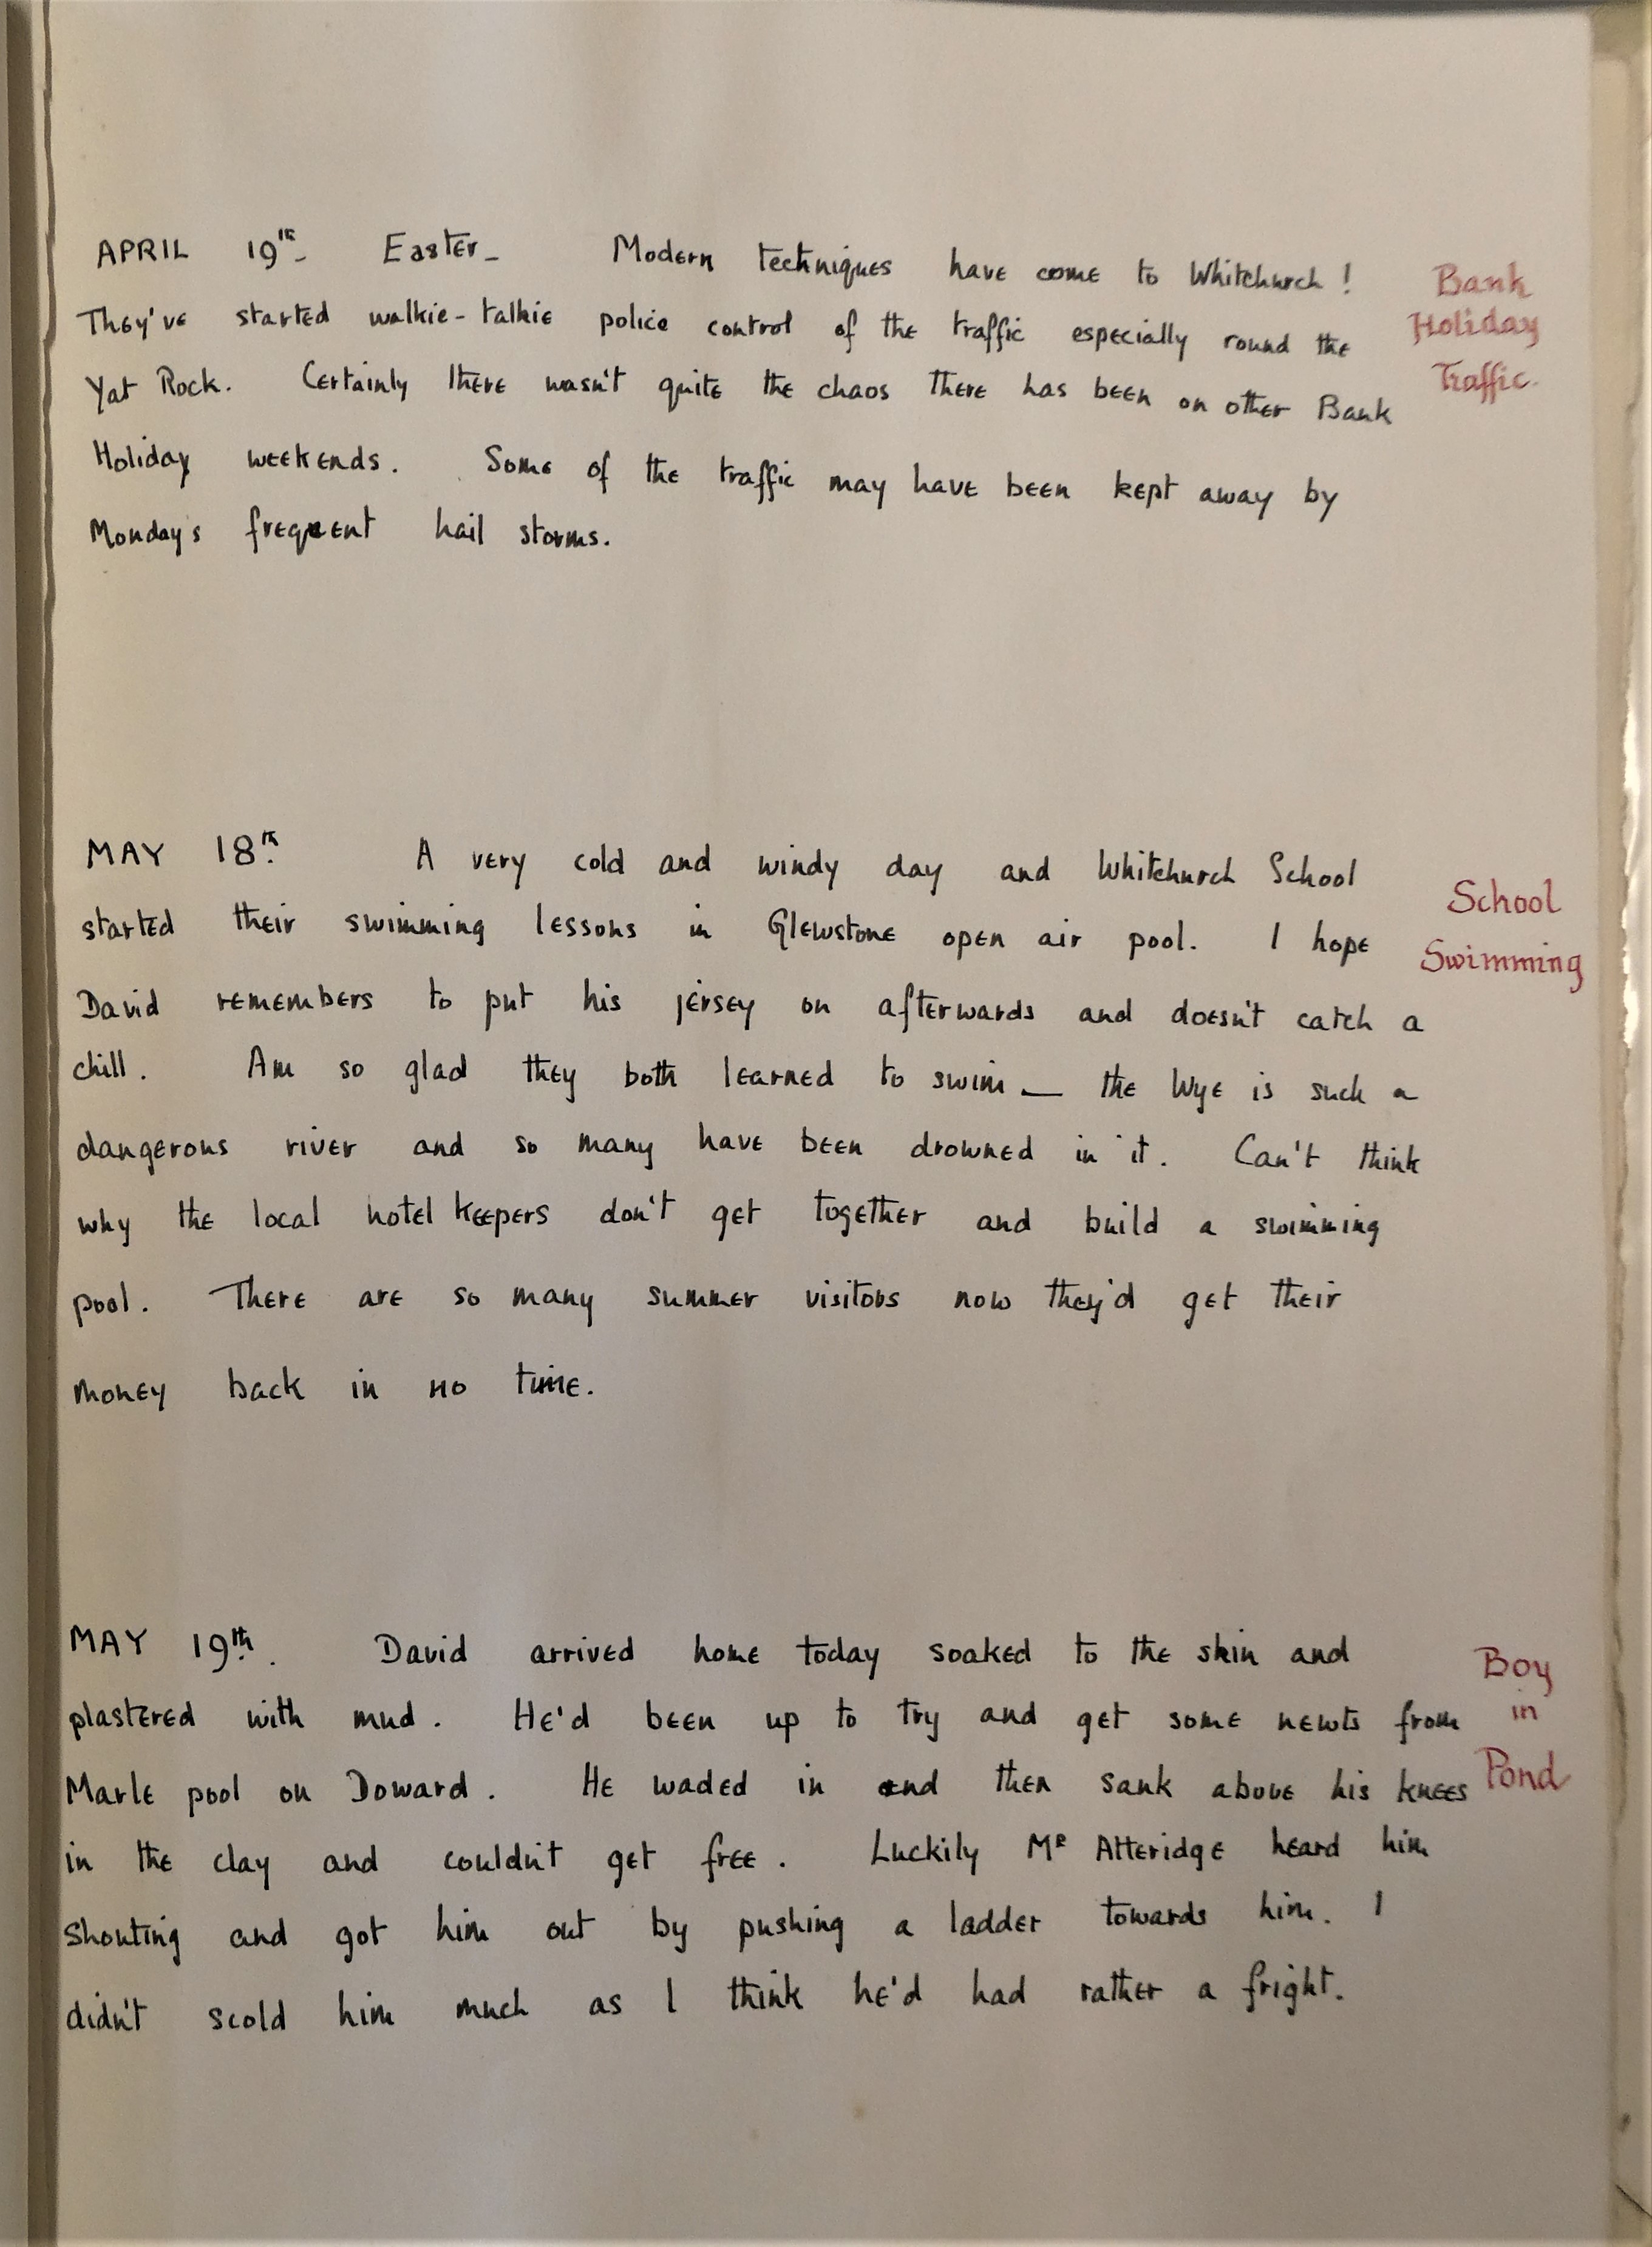 APRIL 19th. Easter_ Modern techniques have come to Whitchurch!
They've started walkie-talkie police control of the traffic especially round the
Yat Rock. Certainly there wasn't quite the chaos there has been on other Bank
Holiday weekends. Some of the traffic may have been kept away by
Monday's frequent hail storms.
Bank
Holiday
Traffic.
MAY 18th. A very cold and windy day and Whitchurch School
started their swimming lessons in Glewstone open air pool. I hope
David remembers to put his jersey on afterwards and doesn't catch a
chill. Am so glad they both learned to swim — the Wye is such a
dangerous river and so many have been drowned in it. Can't think
why the local hotel keepers don't get together and build a swimming
pool. There are so many summer visitors now they'd get their
money back in no time.
School
Swimming
MAY 19th. David arrived home today soaked to the skin and
plastered with mud. He'd been up to try and get some newts from
Marle pool on Doward. He waded in and then sank above his knees
in the clay and couldn't get free. Luckily Mr Atteridge heard him
shouting and got him out by pushing a ladder towards him. I
didn't scold him much as I think he'd had rather a fright.
Boy
in
Pond